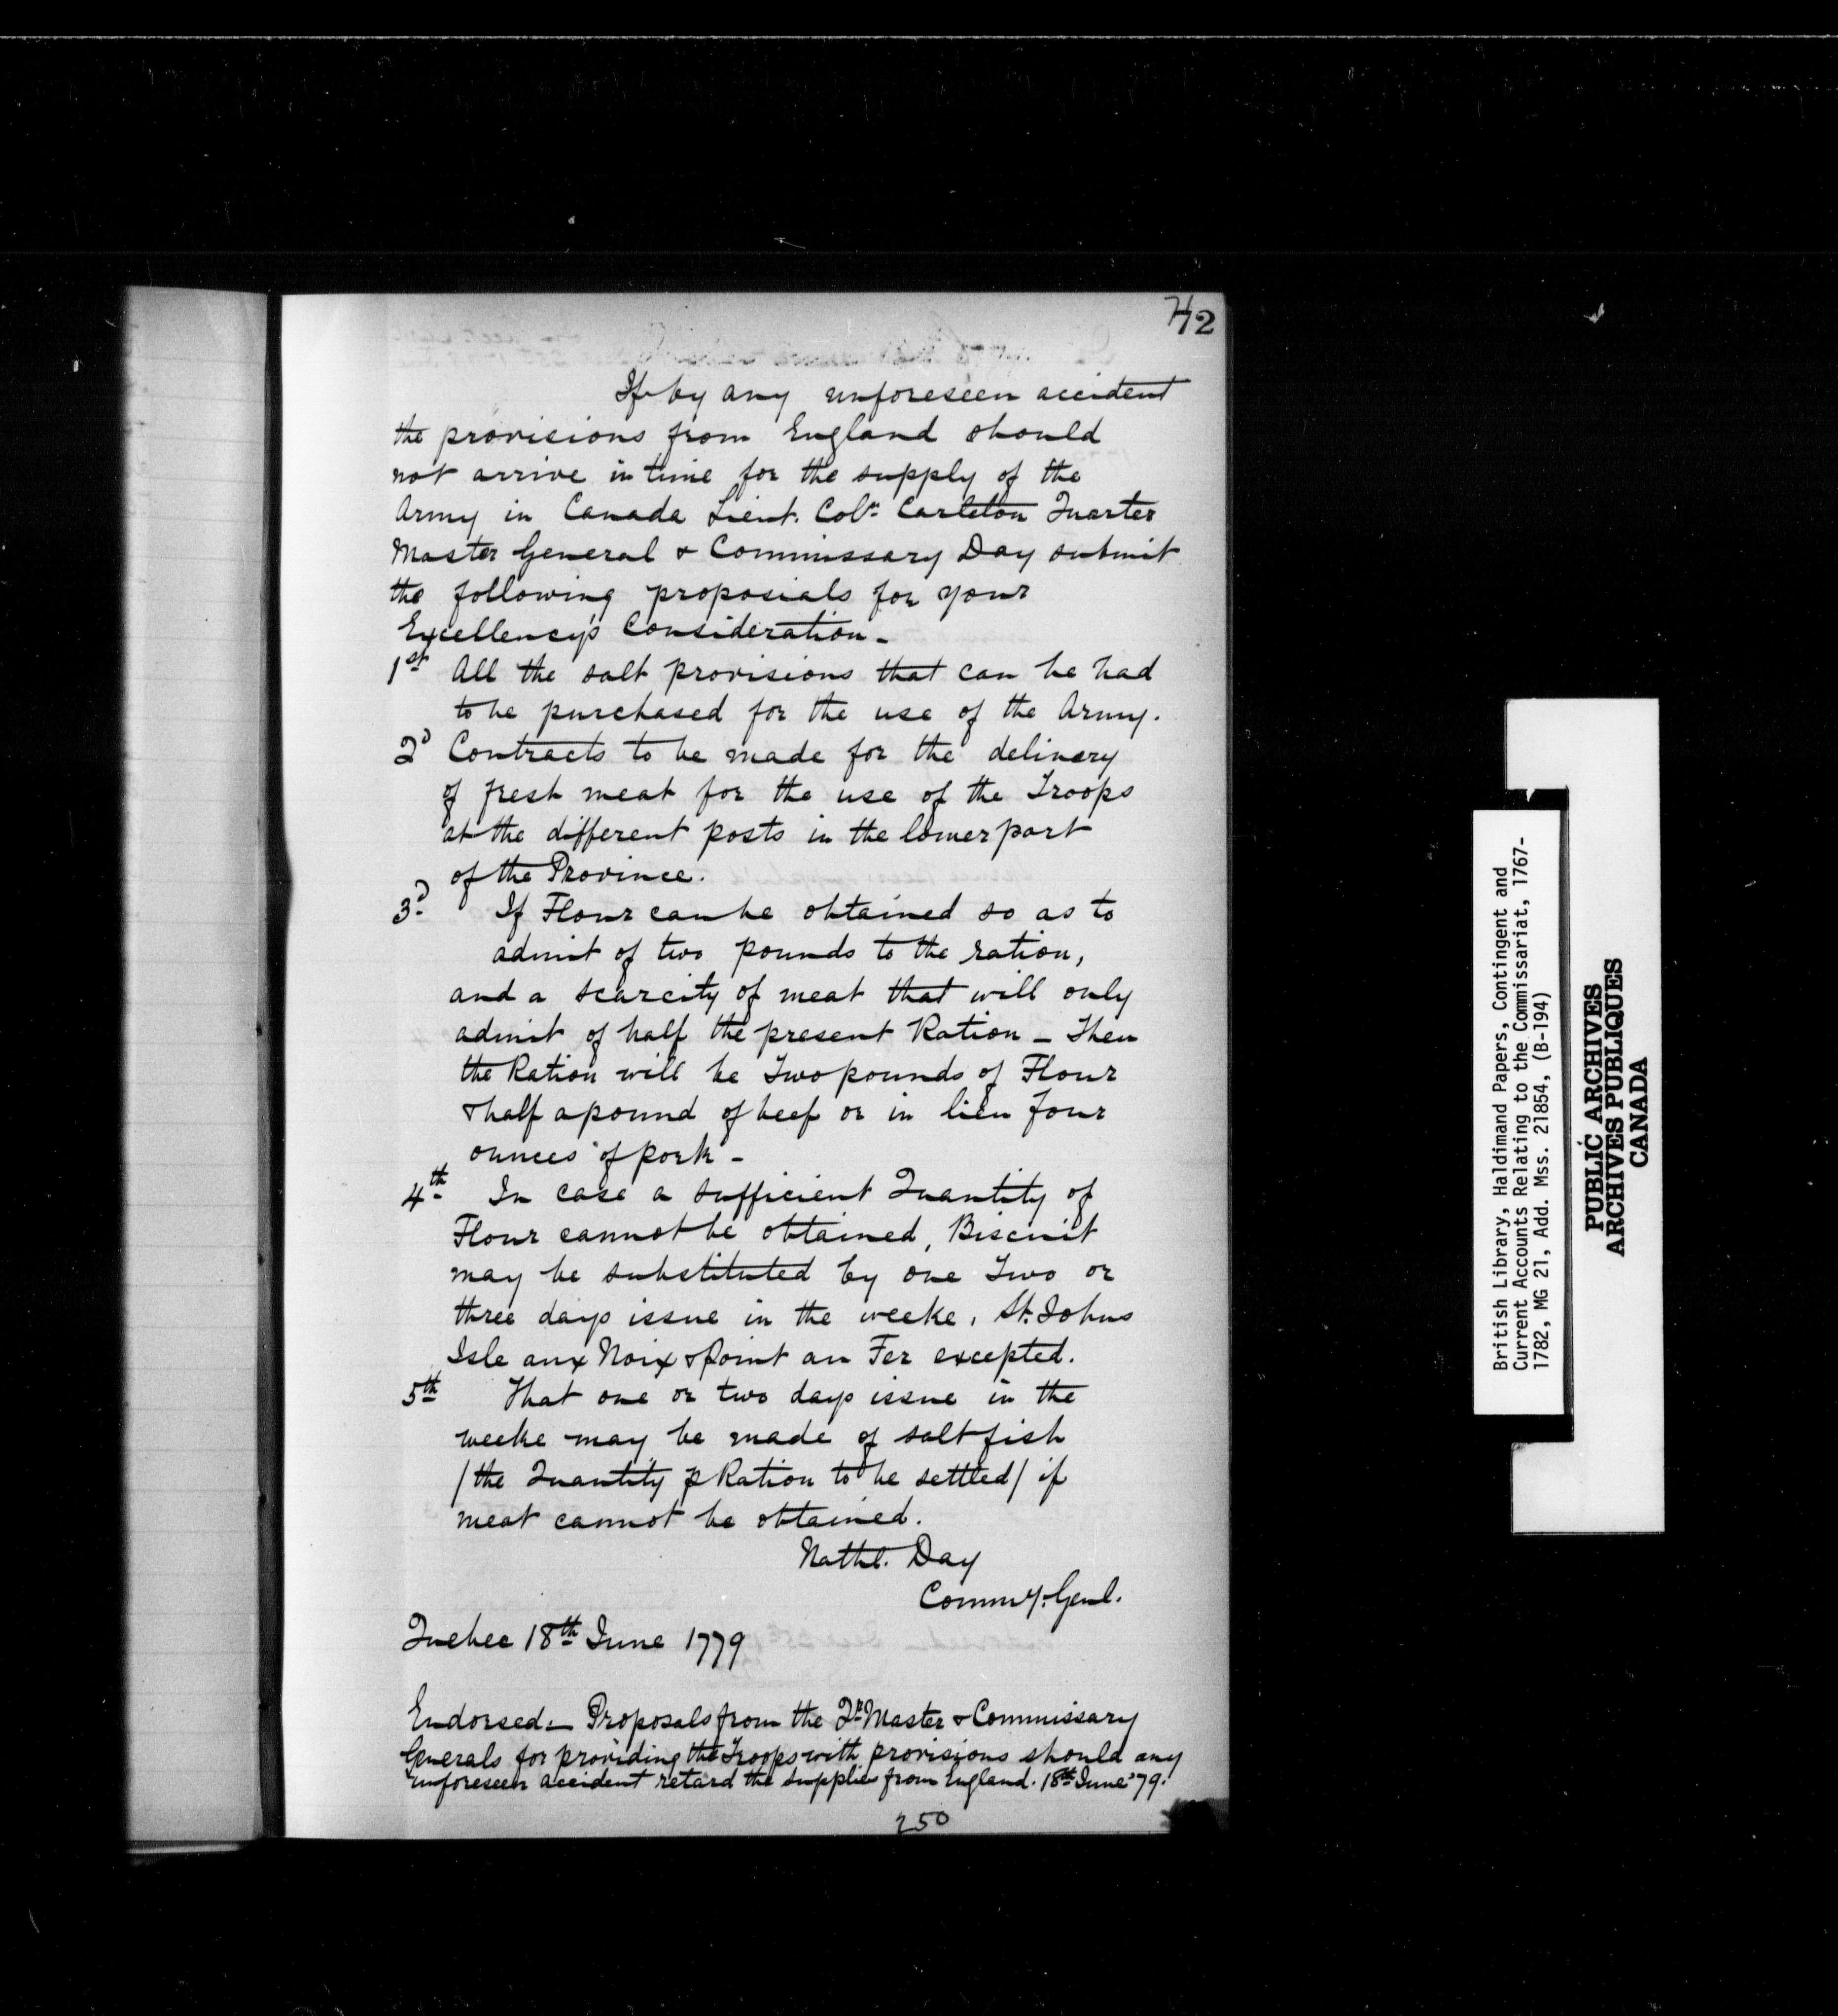 72
If by any unforeseen accident
the provisions from England should
not arrive in time for the supply of the
Army in Canada Lieut. Coln. Carleton Quarter
Master General & Commissary Day submit
the following proposials for your
Excellency's Consideration -
1st All the salt provisions that can be had
to be purchased for the use of the Army.
2d Contracts to be made for the delivery
of fresh meat for the use of the Troops
at the different posts in the lower part
of the Province.
3d If Flour can be obtained so as to
admit of two pounds to the ration,
and a scarcity of meat that will only
admit of half the present Ration - Then
the Ration will be Two pounds of Flour
& half a pound of beef or in lieu four
ounces of pork -
4th In case a sufficient Quantity of
Flour cannot be obtained, Biscuit
may be substituted by one Two or
three days issue in the weeke, St. Johns
Isle aux Noix & Point au Fer excepted.
5th That one or two days issue in the
weeke may be made of salt fish
/the Quantity p Ration to be settled/ if
meat cannot be obtained.
Nathl. Day
Commy. Genl.
Quebec 18th June 1779
Endorsed - Proposals from the Qr. Master & Commissary
Generals for providing the Troops with provisions should any
unforeseen accident retard the supplies from England. 18th June '79.
250
British Library, Haldimand Papers, Contingent and
Current Accounts Relating to the Commissariat, 1767-
1782, MG 21, Add. Mss. 21854, (B-194)
PUBLIC ARCHIVES
ARCHIVES PUBLIQUES
CANADA